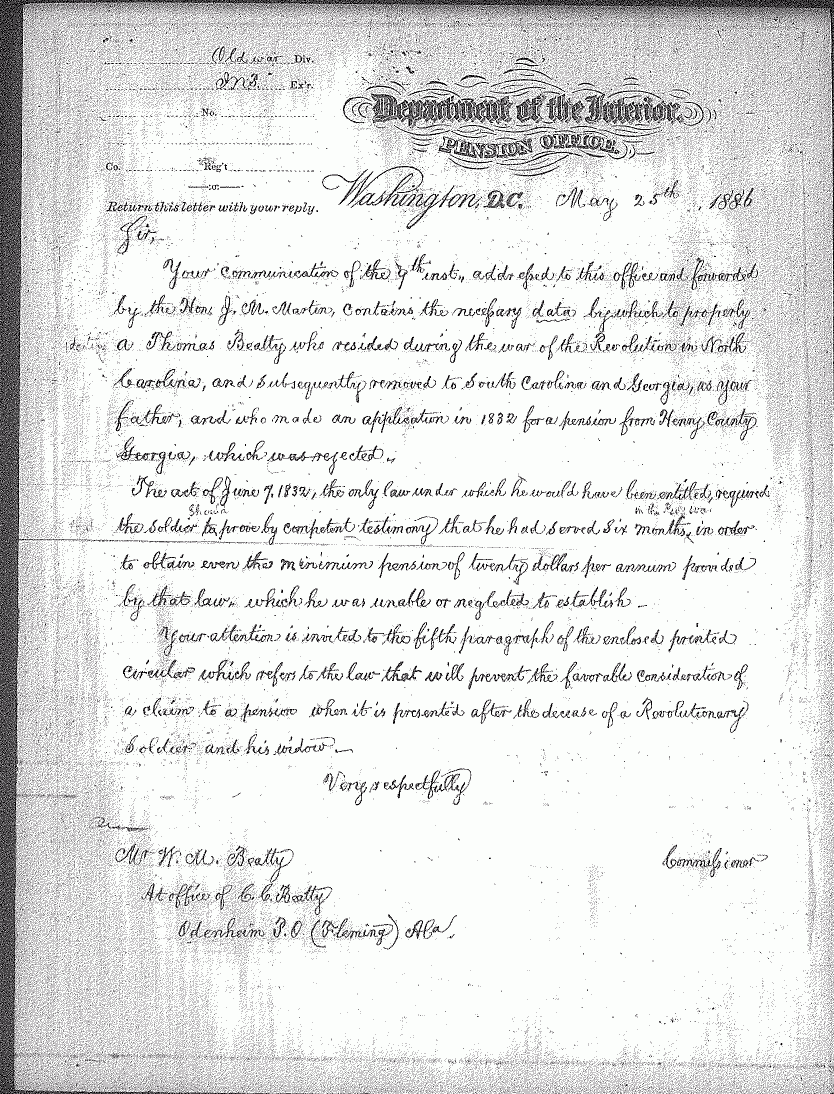 Old war Div.
Ex'r.
No.
Co. Reg't
or
Return this letter with your reply.
Department of the Interior.
PENSION OFFICE.
Washington, D.C. May 25th, 1886
Sir,
Your communication of the 9th inst., addressed to this office and forwarded
by the Hon. J. M. Martin, contains the necessary data by which to properly
a Thomas Beatty who resided during the war of the Revolution in North
Carolina, and subsequently removed to South Carolina and Georgia, as your
father, and who made an application in 1832 for a pension from Henry County
Georgia, which was rejected.
The act of June 7, 1832, the only law under which he would have been entitled, required
should in the Rev. war
the soldier to prove by competent testimony that he had served six months, in order
to obtain even the minimum pension of twenty dollars per annum provided
by that law, which he was unable or neglected to establish
Your attention is invited to the fifth paragraph of the enclosed printed
circular which refers to the law that will prevent the favorable consideration of
a claim to a pension when it is presented after the decease of a Revolutionary
Soldier and his widow.
Very respectfully
Commissioner
Mr W. M. Beatty
At office of C. C. Beatty
Odenheim P.O (Fleming) Ala.